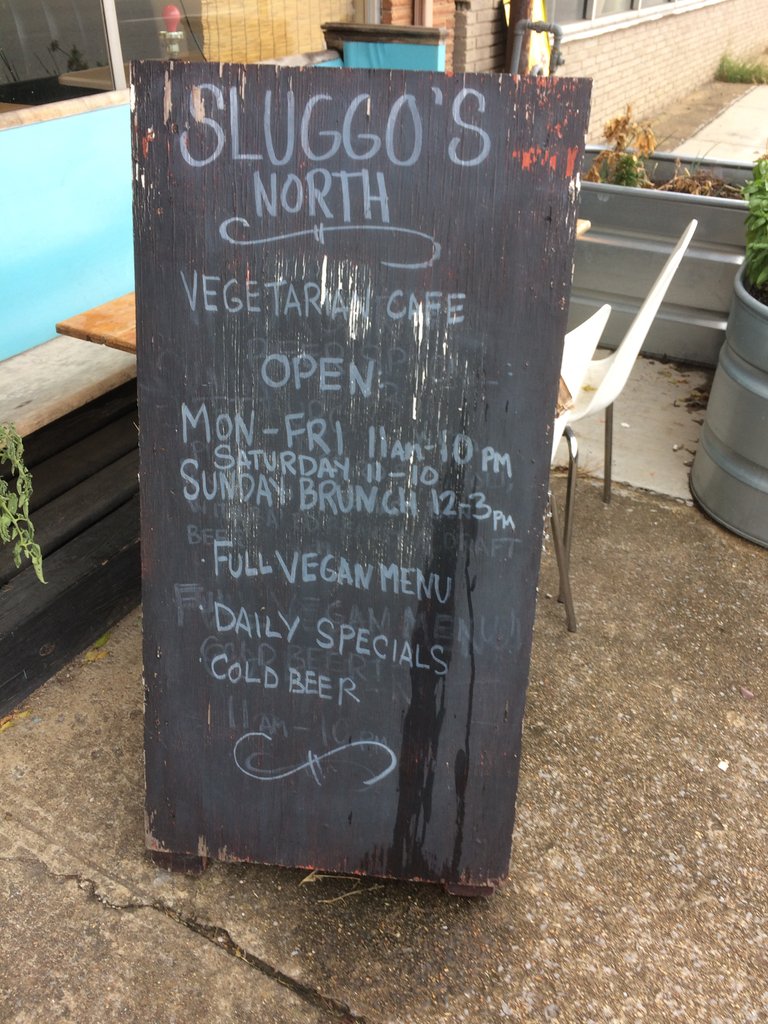 SLUGGO'S
NORTH
VEGETARIAN CAFE
OPEN
MON-FRI 11AM-10PM
SATURDAY 11-10
SUNDAY BRUNCH 12-3PM
· FULL VEGAN MENU
· DAILY SPECIALS
· COLD BEER
11AM-10PM